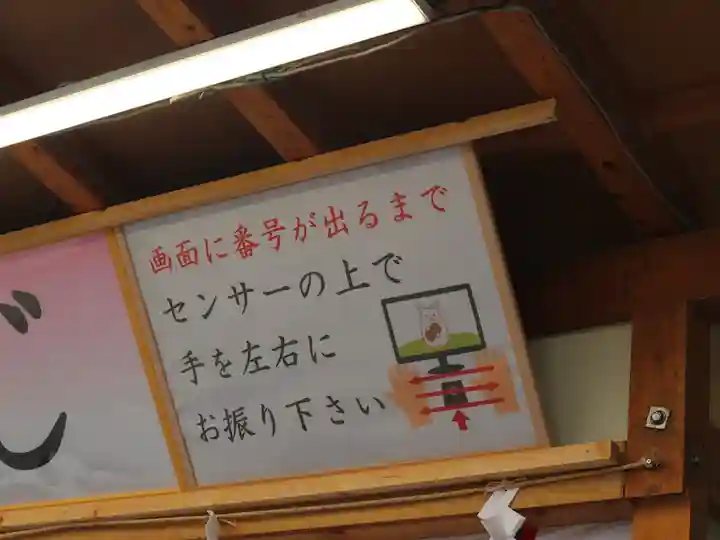 画面に番号が出るまで
センサーの上で
手を左右に
お振り下さい
じ